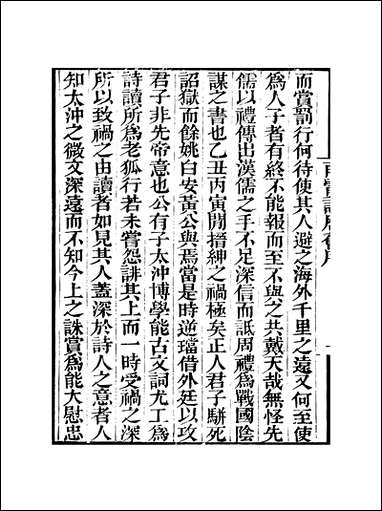 而賞罰行何待使其人避之海外千里之遠又何至使
爲人子者有終不能報而至不與之共戴天哉無怪先
儒以禮傳出漢儒之手不足深信而詆周禮爲戰國陰
謀之書也乙丑丙寅閒搢紳之禍極矣正人君子駢死
詔獄而餘姚白安黃公與焉當是時逆璫借外廷以攻
君子非先帝意也公有子太沖博學能古文詞尤工爲
詩讀所爲老狐行若未嘗怨誹其上而一時受禍之深
所以致禍之由讀者如見其人蓋深於詩人之意者人
知太沖之微文深遠而不知今上之誅賞爲能大慰忠